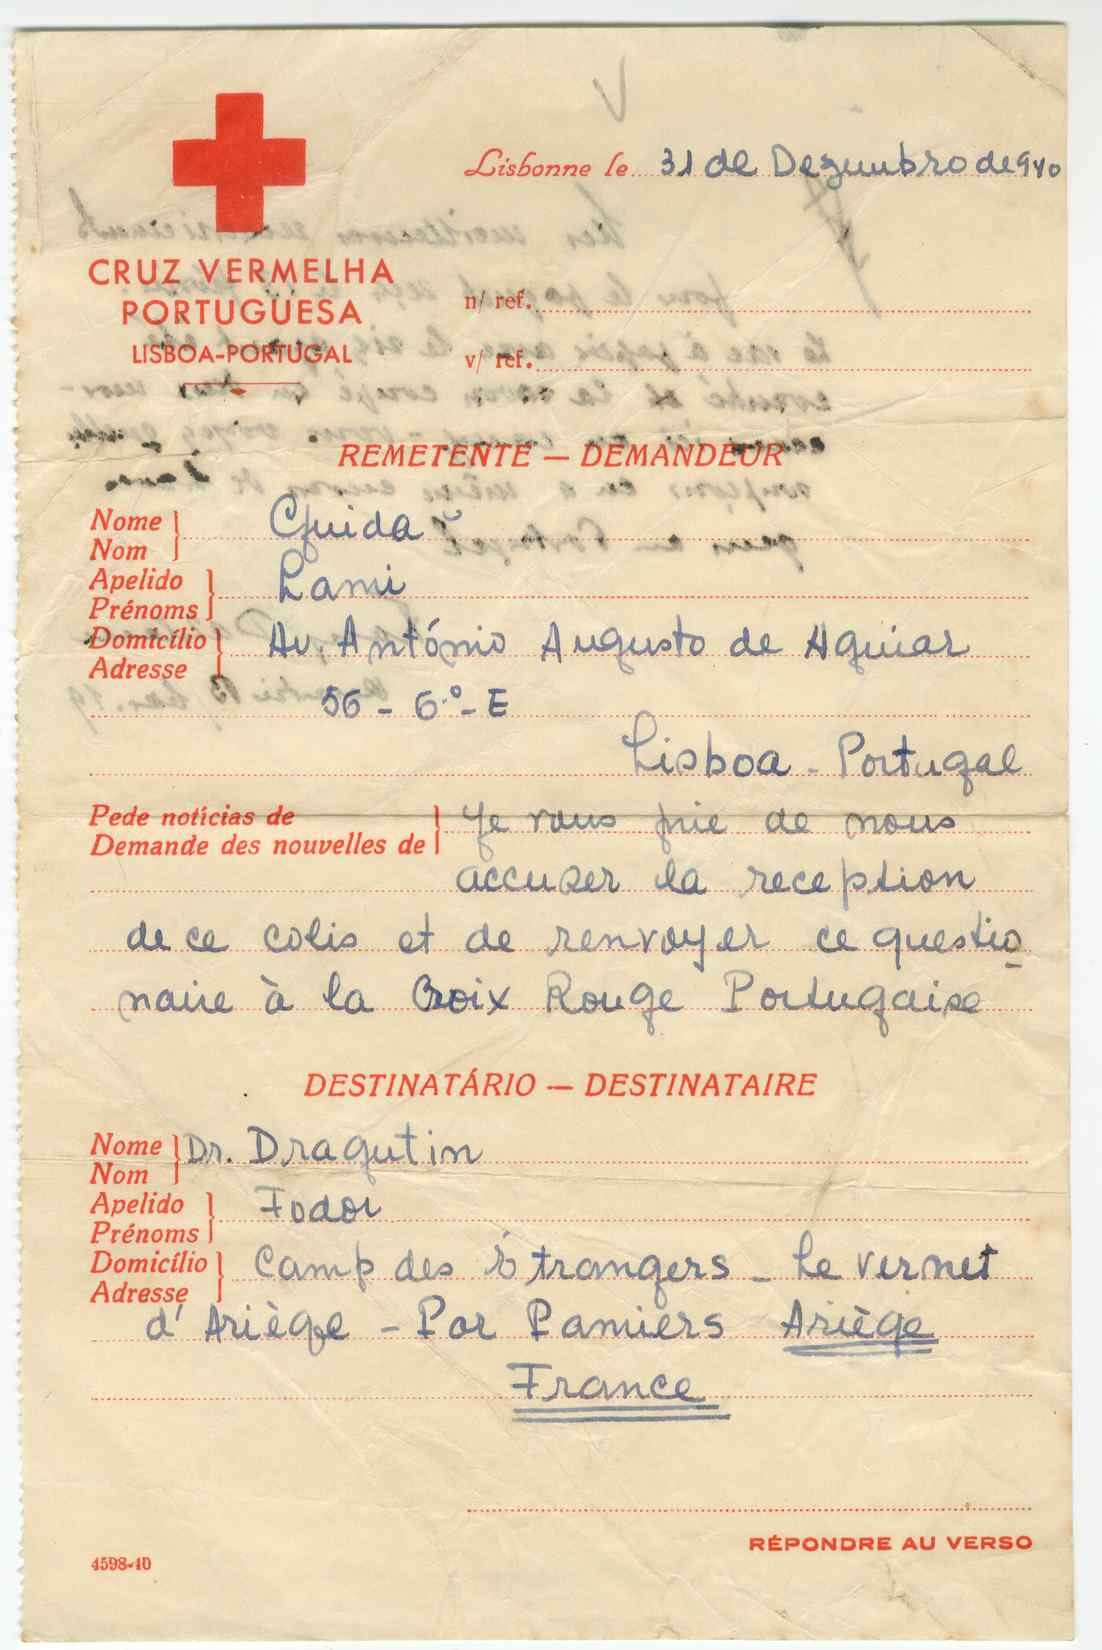 Lisbonne le 31 de Dezembro de 940
CRUZ VERMELHA
PORTUGUESA
LISBOA-PORTUGAL
n/ ref.
v/ ref.
REMETENTE — DEMANDEUR
Nome
Nom
Guida
Apelido
Prénoms
Lami
Domicílio
Adresse
Av. António Augusto de Aguiar
56 - 6.º - E
Lisboa - Portugal
Pede notícias de
Demande des nouvelles de
Je vous prie de nous
accuser la reception
de ce colis et de renvoyer ce questio
naire à la Croix Rouge Portugaise
DESTINATÁRIO — DESTINATAIRE
Nome
Nom
Dr. Dragutin
Apelido
Prénoms
Fodor
Domicílio
Adresse
Camp des Étrangers - Le Vernet
d' Ariège - Par Pamiers Ariège
France
RÉPONDRE AU VERSO
4598-40